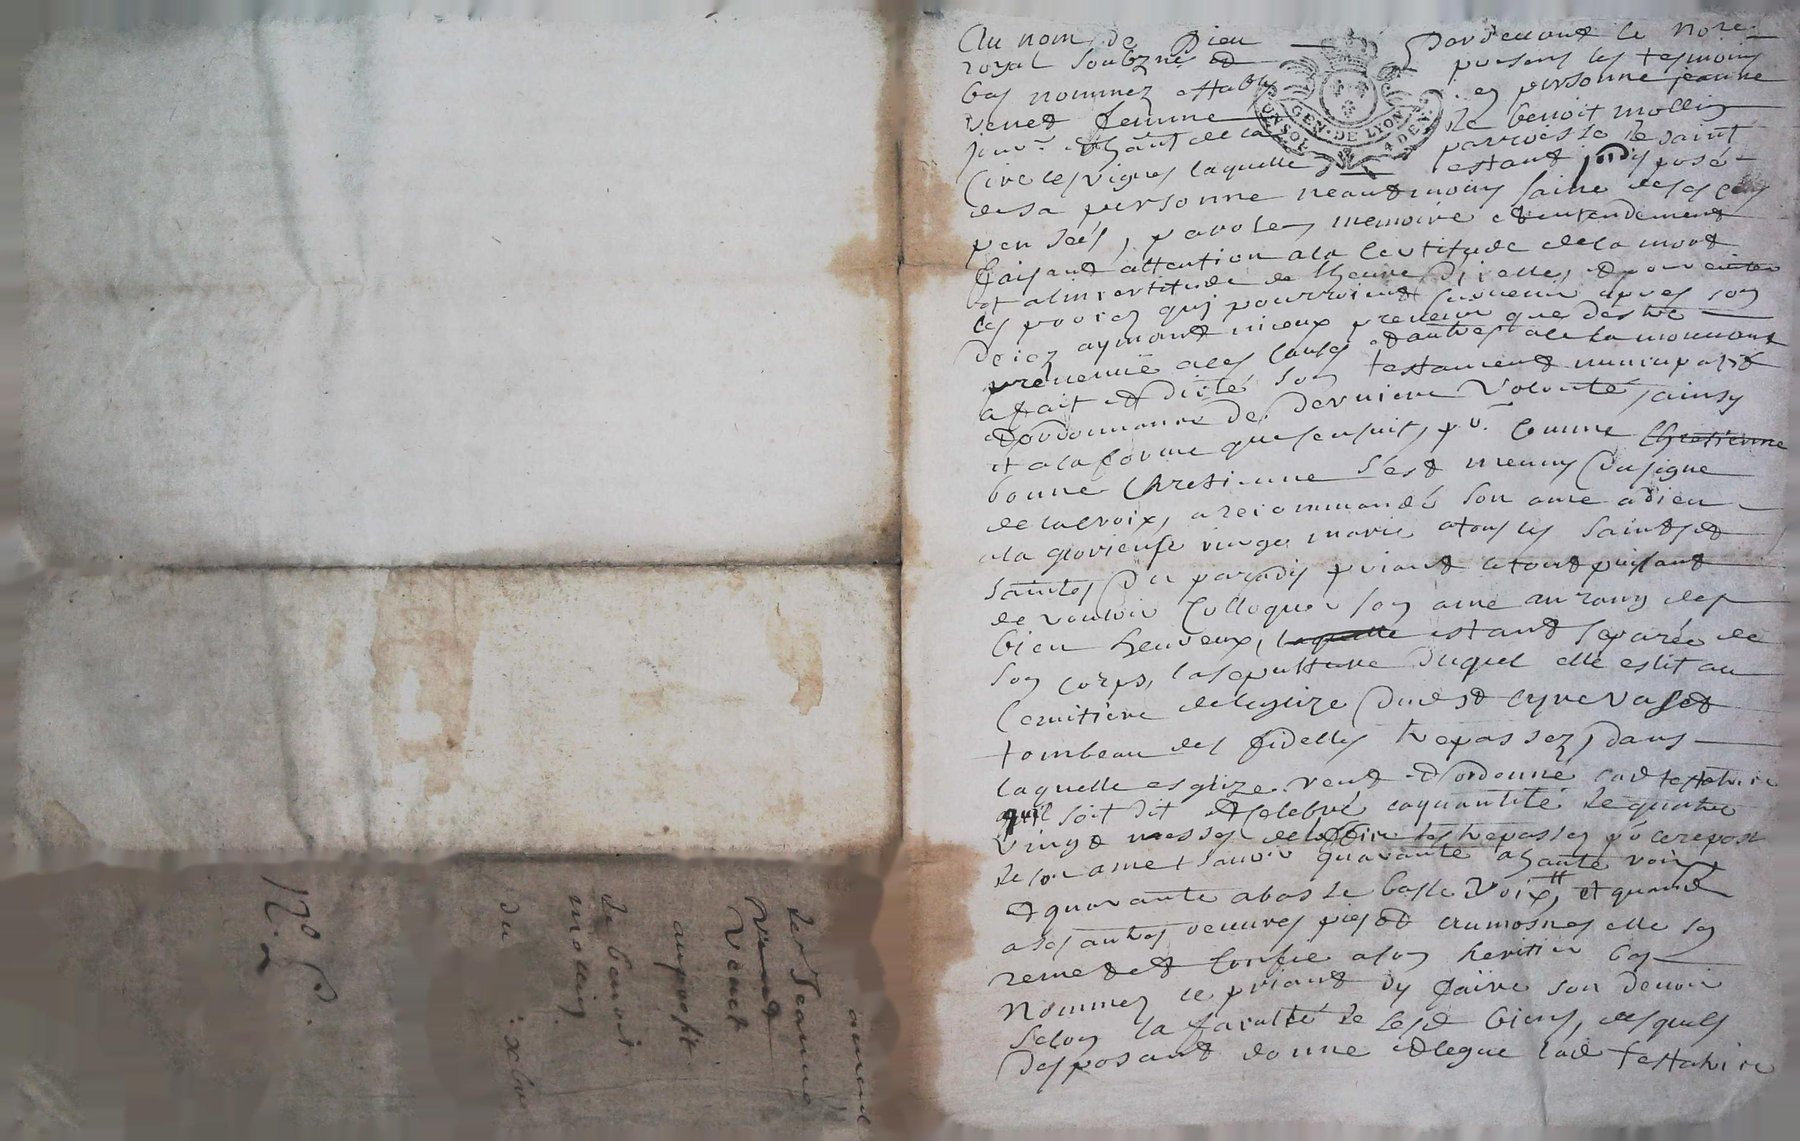 Au nom de Dieu Pardevant le No.re
royal soubzné et presens les tesmoins
bas nommez estably en personne jeanne
venet femme de benoit mollin
habitant de la parroisse de saint
Cire les vignes laquelle estant indisposé
de sa personne neantmoins saine de ses
pensées, parolles, memoire et entendement
faisant attention a la certitude de la mort
et a lincertitude de lheure dicelle, et pour eviter
les procez quj pourroient survenir apres son
decez aymant mieux prevenir que destre
prevenüe a ces causes et autres a ce la mouvant
a fait et dicté son testament nuncupatif
et ordonnance de derniere volonté, ainsy
et a la forme que sensuit, p.r comme chrestienne
bonne Chrestienne s'est munny du signe
de la croix, a recommandé son ame a Dieu
a la glorieuse vierge marie a tous les saints et
saintes du paradis priant le tout puissant
de vouloir colloquer son ame au rang des
bien heureux, laquelle estant separée de
son corps, la sepulture duquel elle eslit au
Cemitiere de leglize dud st cyre vas et
tombeau des fidelles trepassez, dans
laquelle esglize veut et ordonne lad testatrice
quil soit dit et celebré la quantité de quatre
vingt messes de les trepasses p.r le repos
de son ame, savoir quarante a haute voix
et quarante a basse voix, et quand
a ses autres oeuvres pies et aumosnes elle sen
remet et confie a son heritier bas
Nommez le priant dy faire son devoir
selon la faculté de sesd biens, desquels
desposant donne et legue lad testatrice
GEN. DE LYON
4 DEN.
de Jeanne
Venet
Venet
au proffit
de benoit
mollin
du
N.o 5.
2